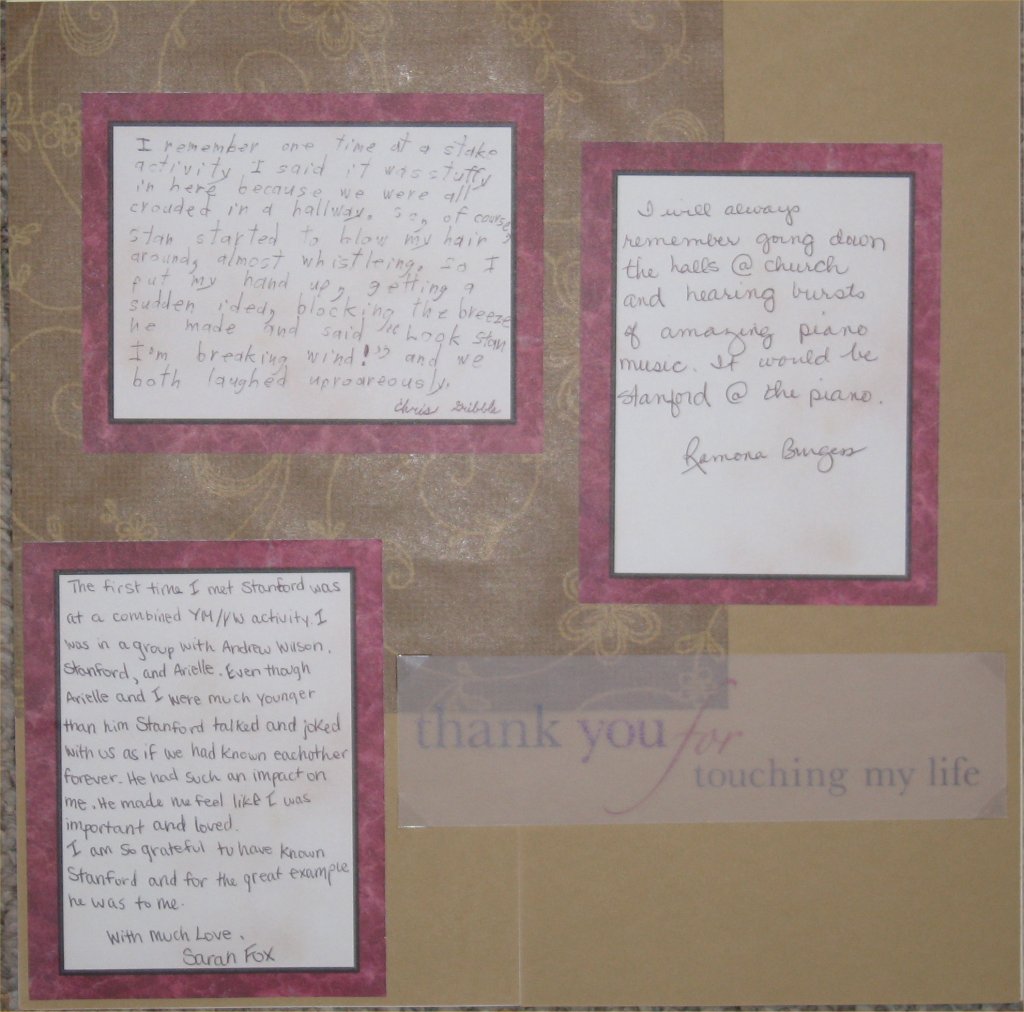 I remember one time at a stake
activity I said it was stuffy
in here because we were all
crouded in a hallway. So, of course,
Stan started to blow my hair
around, almost whistleing. So I
put my hand up, getting a
sudden idea, blocking the breeze
he made and said "Look Stan
I'm breaking wind!" and we
both laughed uproareously.
Chris Dribble
I will always
remember going down
the halls @ church
and hearing bursts
of amazing piano
music. It would be
Stanford @ the piano.
Ramona Burgess
The first time I met Stanford was
at a combined YM/YW activity. I
was in a group with Andrew Wilson,
Stanford, and Arielle. Even though
Arielle and I were much younger
than him Stanford talked and joked
with us as if we had known eachother
forever. He had such an impact on
me. He made me feel like I was
important and loved.
I am so grateful to have known
Stanford and for the great example
he was to me.
With much Love,
Sarah Fox
thank you for
touching my life